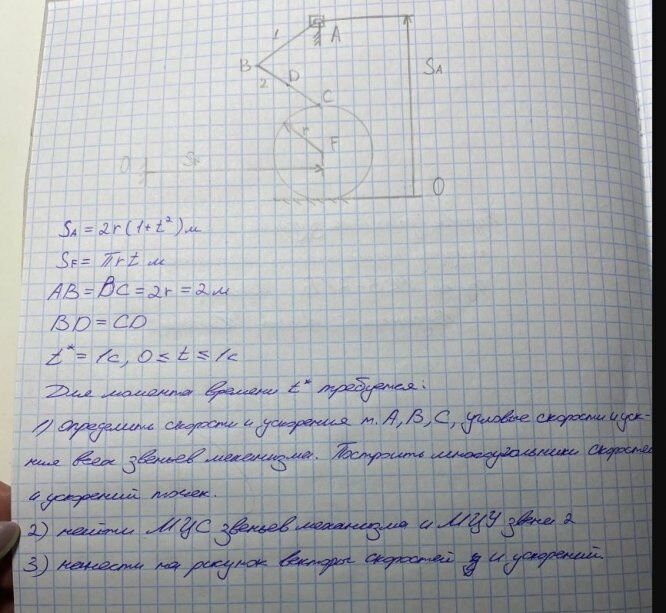 1
A
B
2
D
S_A
C
r
F
O
O
S_A = 2r(1+t²) м
S_F = πrt м
AB = BC = 2r = 2 м
BD = CD
t* = 1c, 0 ≤ t ≤ 1c
Для момента времени t* требуется:
1) Определить скорости и ускорения т. A, B, C, угловые скорости и уск-
ния всех звеньев механизма. Построить многоугольники скоростей
и ускорений точек.
2) найти МЦС звеньев механизма и МЦУ звена 2
3) нанести на рисунок векторы скоростей и ускорений